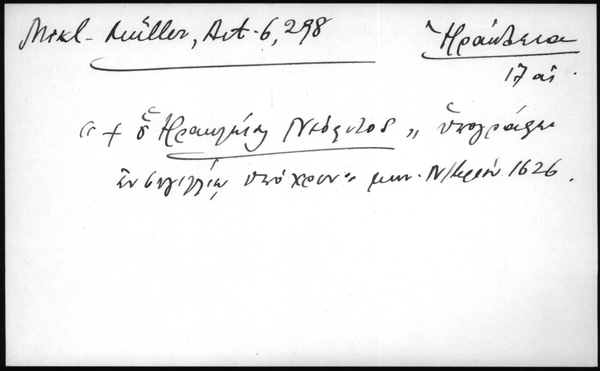 Mikl- Müller, Act. 6, 298
Ἡράκλεια
17 αἰ.
“ + ὁ Ἡρακλείας Νεόφυτος „ ὑπογράφει
ἐν σιγιλλίῳ ὑπὸ χρον. μην. 1626.